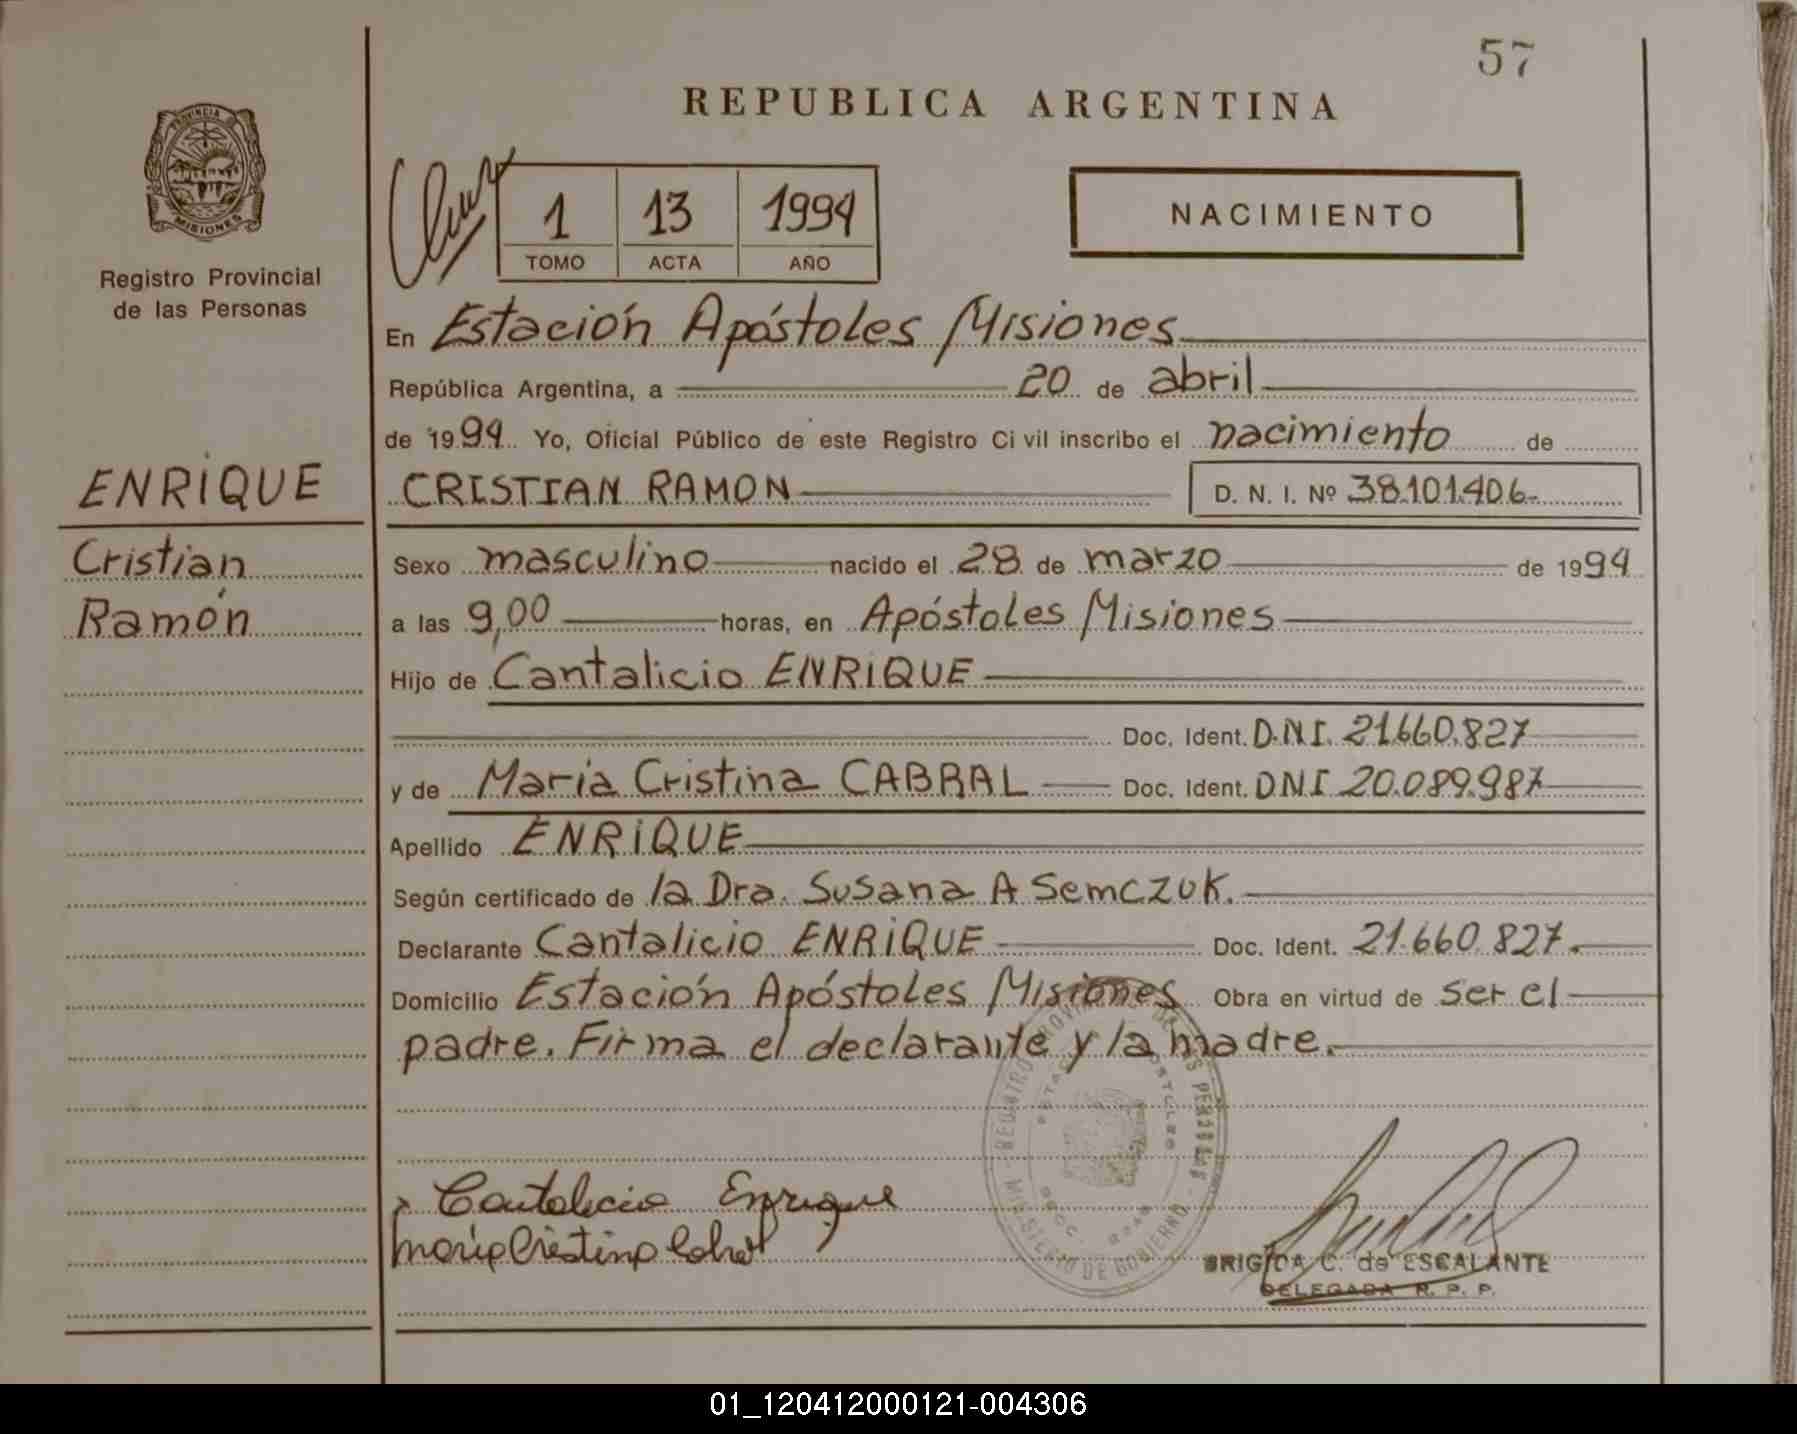 57
REPUBLICA ARGENTINA
PROVINCIA
MISIONES
Registro Provincial
de las Personas
1 13 1994
TOMO ACTA AÑO
NACIMIENTO
En Estación Apóstoles Misiones
República Argentina, a 20 de abril
de 1994 Yo, Oficial Público de este Registro Civil inscribo el nacimiento de
ENRIQUE
CRISTIAN RAMON D. N. I. Nº 38.101.406
Cristian
Ramón
Sexo masculino nacido el 28 de marzo de 1994
a las 9,00 horas, en Apóstoles Misiones
Hijo de Cantalicio ENRIQUE
Doc. Ident. D.N.I. 21.660.827
y de Maria Cristina CABRAL Doc. Ident. DNI 20.089.987
Apellido ENRIQUE
Según certificado de la Dra. Susana A Semczuk.
Declarante Cantalicio ENRIQUE Doc. Ident. 21.660.827.
Domicilio Estación Apóstoles Misiones Obra en virtud de ser el
padre. Firma el declarante y la madre.
REGISTRO PROVINCIAL DE LAS PERSONAS
MINISTERIO DE GOBIERNO
Cantalicio Enrique
Maria Cristina Cabral
BRIGIDA C. de ESCALANTE
DELEGADA R. P. P.
01_120412000121-004306